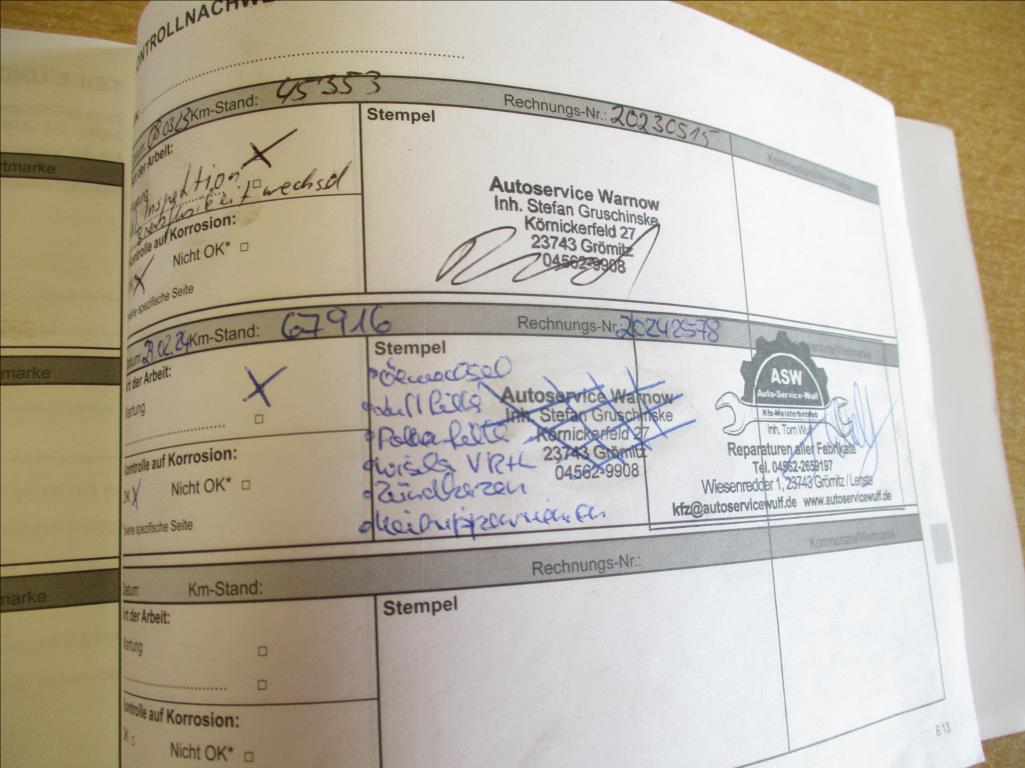 KONTROLLNACHWE
08/03/23 Km-Stand: 45353 Rechnungs-Nr.: 20230515 Kommentare/Wertmarke
der Arbeit:
Inspektion
Bremsflüssigkeitwechsel
Kontrolle auf Korrosion:
Nicht OK* □
siehe spezifische Seite
Stempel
Autoservice Warnow
Inh. Stefan Gruschinske
Körnickerfeld 27
23743 Grömitz
04562-9908
Datum: 21.02.24 Km-Stand: 67916 Rechnungs-Nr. 20242578
Art der Arbeit:
Wartung
Kontrolle auf Korrosion:
OK X Nicht OK* □
*siehe spezifische Seite
Stempel
• Ölwechsel
• Luftfilter
• Pollenfilter
• Zündkerzen
Autoservice Warnow
Inh. Stefan Gruschinske
Körnickerfeld 27
23743 Grömitz
04562-9908
ASW
Auto-Service-Wulf
Kfz-Meisterbetrieb
Inh. Tom Wulf
Reparaturen aller Fabrikate
Tel. 04562-2659197
Wiesenredder 1, 23743 Grömitz / Lenste
kfz@autoservicewulf.de www.autoservicewulf.de
Datum: Km-Stand: Rechnungs-Nr.: Kommentare/Wertmarke
Art der Arbeit:
Wartung □
□
Kontrolle auf Korrosion:
OK □ Nicht OK* □
Stempel
6.13